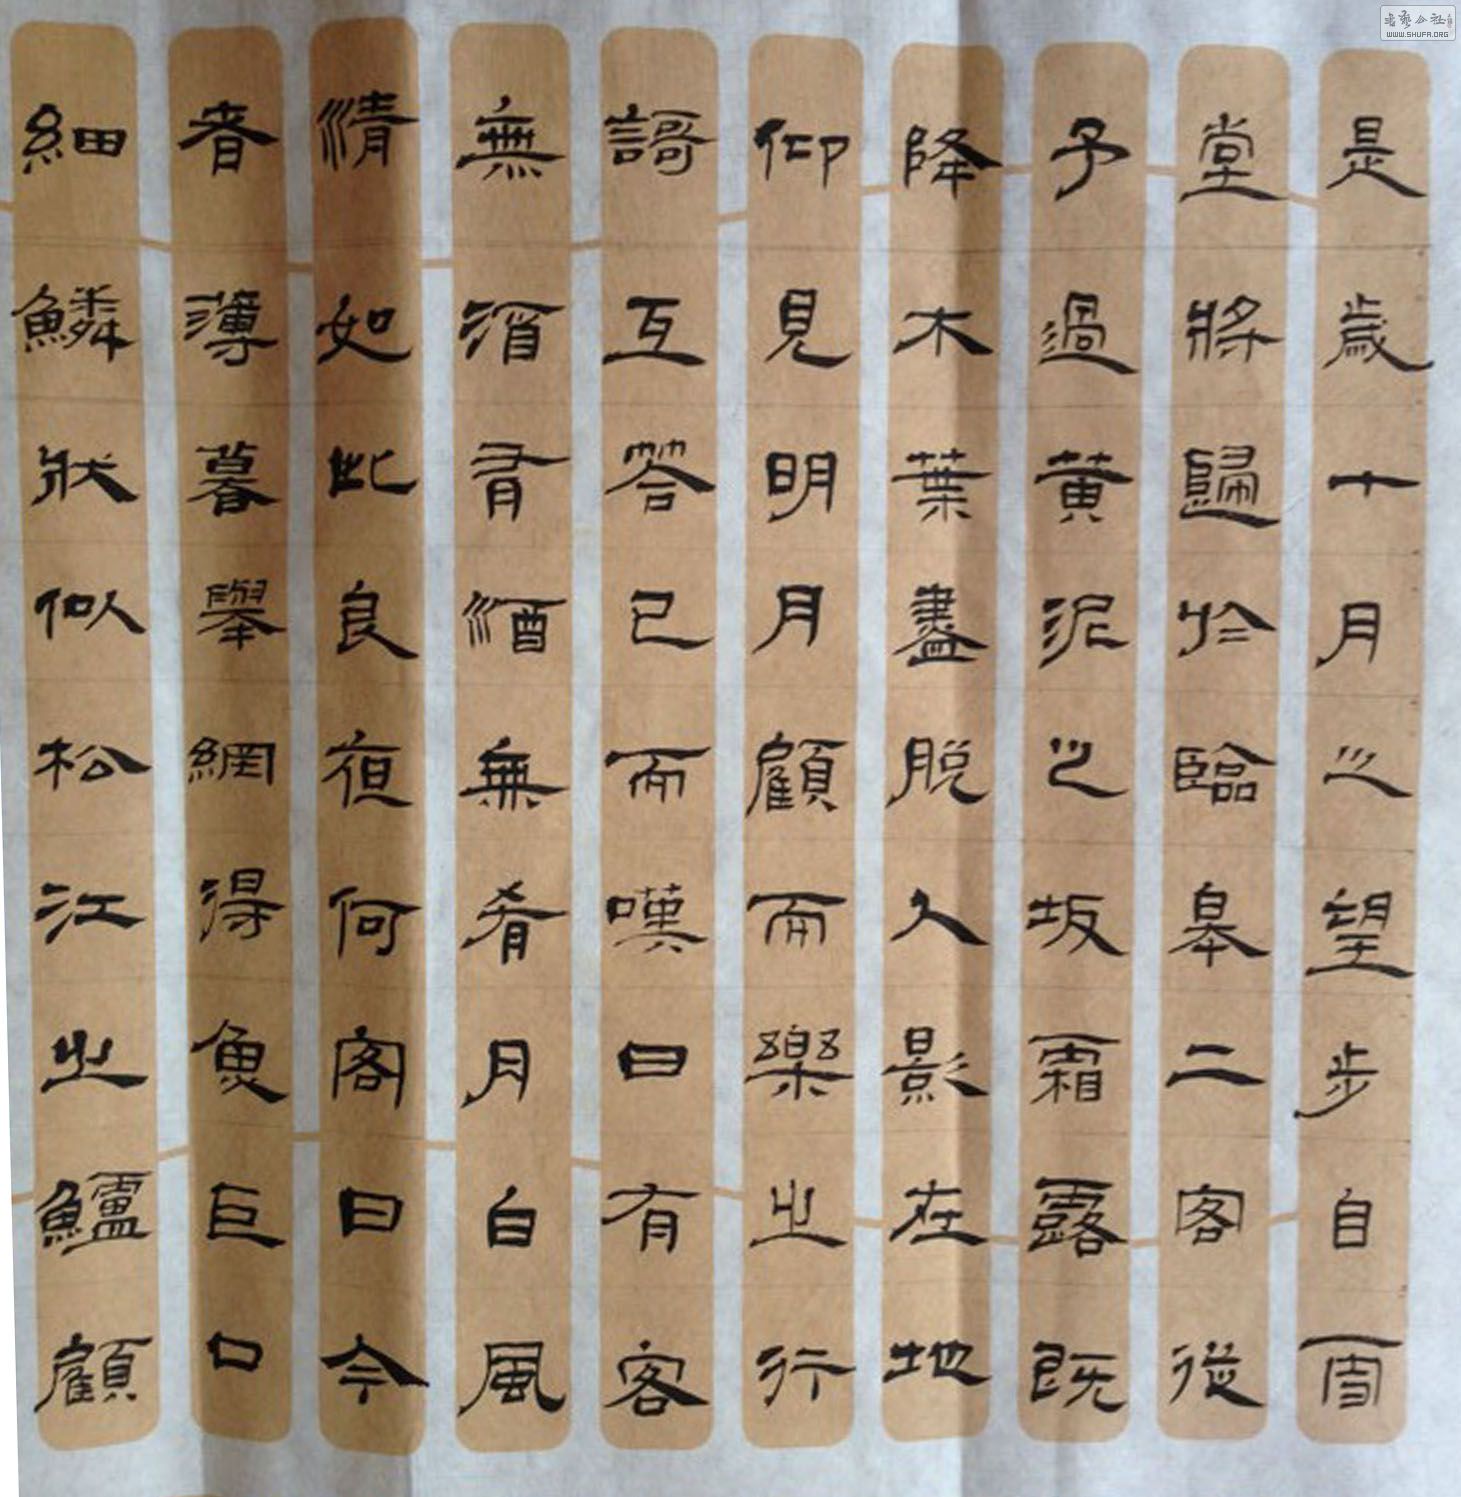 是歲十月之望步自雪
堂將歸於臨皋二客從
予過黃泥之坂霜露既
降木葉盡脫人影在地
仰見明月顧而樂之行
謌互答已而嘆曰有客
無酒有酒無肴月白風
清如此良夜何客曰今
者薄暮舉網得魚巨口
細鱗狀似松江之鱸顧
书艺公社
WWW.SHUFA.ORG